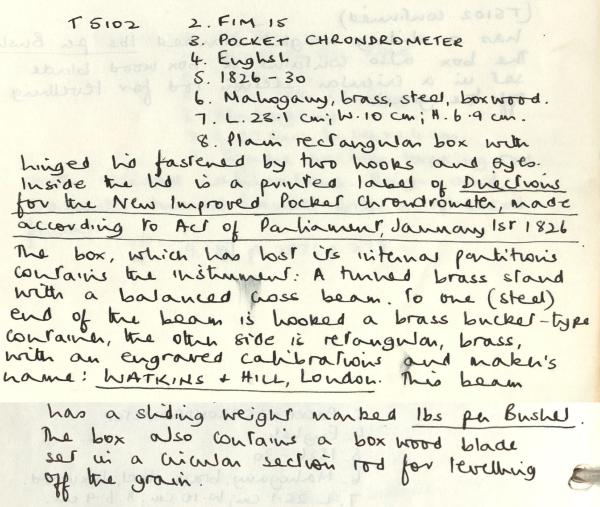 T 5102 2. FIM 15
3. POCKET CHRONDROMETER
4. English
5. 1826-30
6. Mahogany, brass, steel, boxwood.
7. L. 23.1 cm; W. 10 cm; H. 6.9 cm.
8. Plain rectangular box with
hinged lid fastened by two hooks and eyes.
Inside the lid is a printed label of Directions
for the New Improved Pocket Chrondrometer, made
according to Act of Parliament, January 1st 1826
The box, which has lost its internal partitions
contains the instrument: A turned brass stand
with a balanced cross beam. To one (steel)
end of the beam is hooked a brass bucket-type
container, the other side is retangular, brass,
with an engraved calibrations and maker's
name: WATKINS + HILL, London. This beam
has a sliding weight marked lbs per Bushel.
The box also contains a box wood blade
set in a circular section rod for levelling
off the grain.